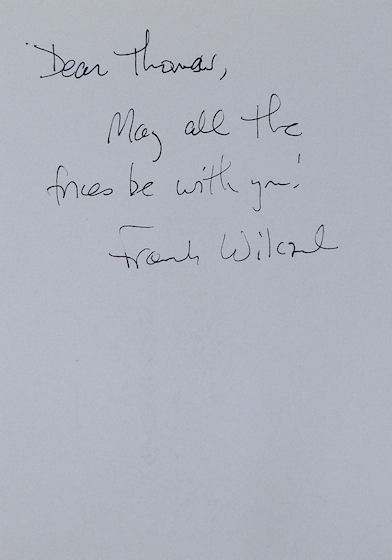 Dear Thomas,
May all the
forces be with you!
Frank Wilczek